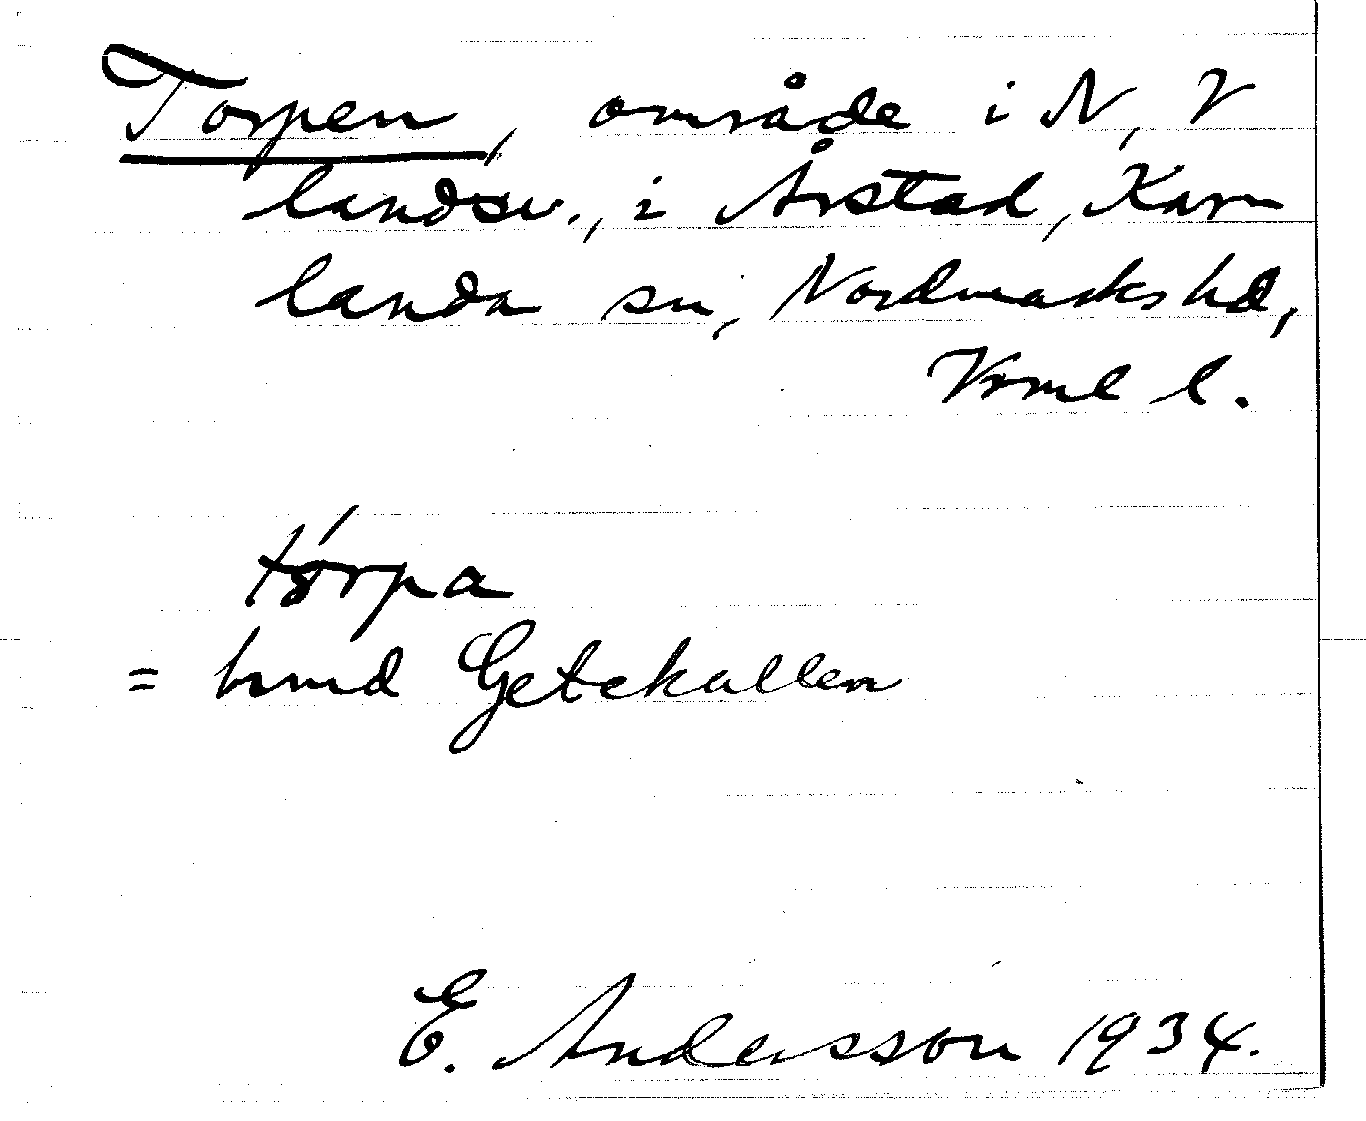 Torpen, område i N, V
landsv., i Årstad, Karl
landa sn, Nordmarks hd,
Vrml l.
tǿrpa
= hmd Getekallen
E. Andersson 1934.